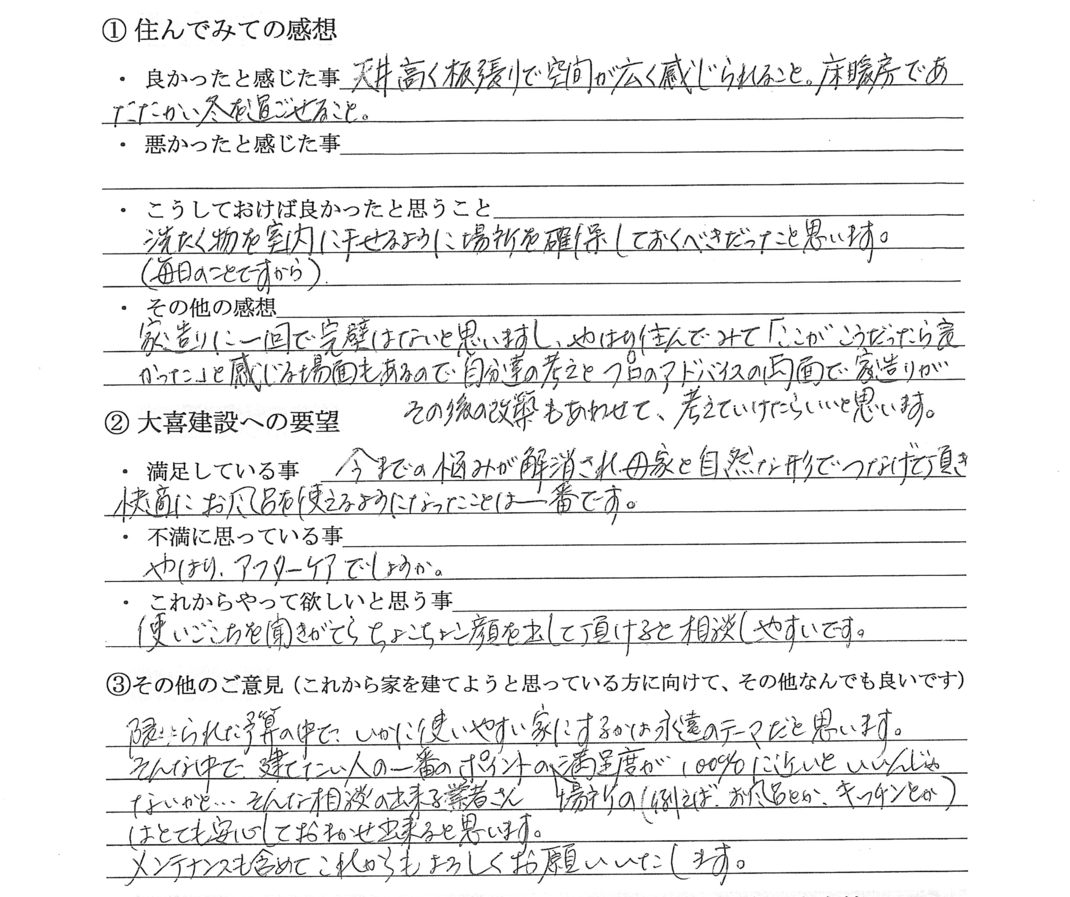 ① 住んでみての感想
・ 良かったと感じた事 天井高く板張りで空間が広く感じられること。床暖房であ
たたかい冬を過ごせること。
・ 悪かったと感じた事
・ こうしておけば良かったと思うこと
洗たく物を室内に干せるように場所を確保しておくべきだったこと思います。
(毎日のことですから)
・ その他の感想
家造りに一回で完璧はないと思いますし、やはり住んでみて「ここがこうだったら良
かった」と感じる場面もあるので自分達の考えとプロのアドバイスの両面で家造りが
その後の改築もあわせて、考えていけたらいいと思います。
② 大喜建設への要望
・ 満足している事 今までの悩みが解消され母家と自然な形でつなげて頂き
快適にお風呂を使えるようになったことは一番です。
・ 不満に思っている事
やはり、アフターケアでしょうか。
・ これからやって欲しいと思う事
使いごこちを聞きがてらちょこちょこ顔を出して頂けると相談しやすいです。
③その他のご意見（これから家を建てようと思っている方に向けて、その他なんでも良いです）
られた予算の中で、いかに使いやすい家にするかは永遠のテーマだと思います。
そんな中で、建てたい人の一番のポイントの満足度が100%に近いといいんじゃ
ないかと… そんな相談の出来る業者さん 場所の(例えば、お風呂とか、キッチンとか)
はとても安心しておまかせ出来ると思います。
メンテナンスも含めてこれからもよろしくお願いいたします。